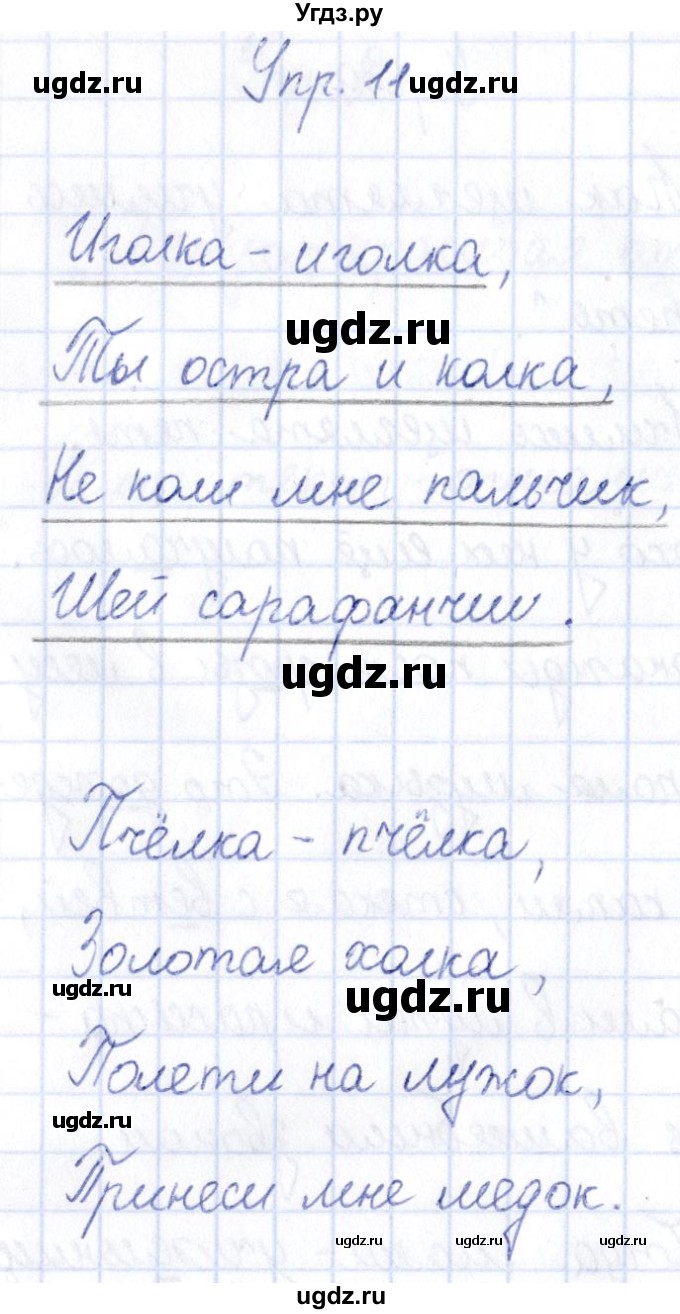 Угдз.ру
ugdz.ru Упр. 11 ugdz.ru
Иголка - иголка,
ugdz.ru
Ты остра и колка,
Не коли мне пальчик,
Шей сарафанчик.
ugdz.ru
Пчёлка - пчёлка,
Золотая холка,
ugdz.ru ugdz.ru
Полети на лужок,
ugdz.ru
Принеси мне медок.
ugdz.ru ugdz.ru ugdz.ru
ugdz.ru